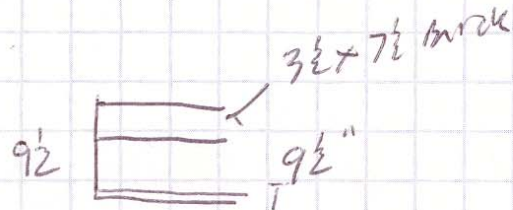 3½ x 7½ Brick
9½
9½"